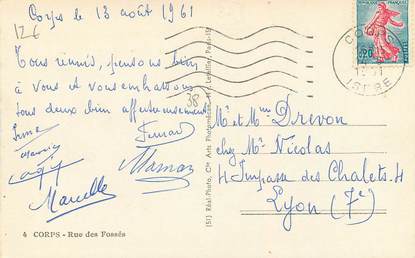 Corps le 13 août 1961
12€
Tous réunis, pensons bien
à vous et vous embrassons
tous deux bien affectueusement
38
Irma
Fernand
Maman
Marcelle
4 CORPS - Rue des Fossés
(51) Réal-Photo, Cie Arts Photomécaniques
RÉPUBLIQUE FRANÇAISE
0,20
CORPS
ISERE
M. et Mme Drevon
chez Mr Nicolas
4 Impasse des Chalets. 4
Lyon (7e)